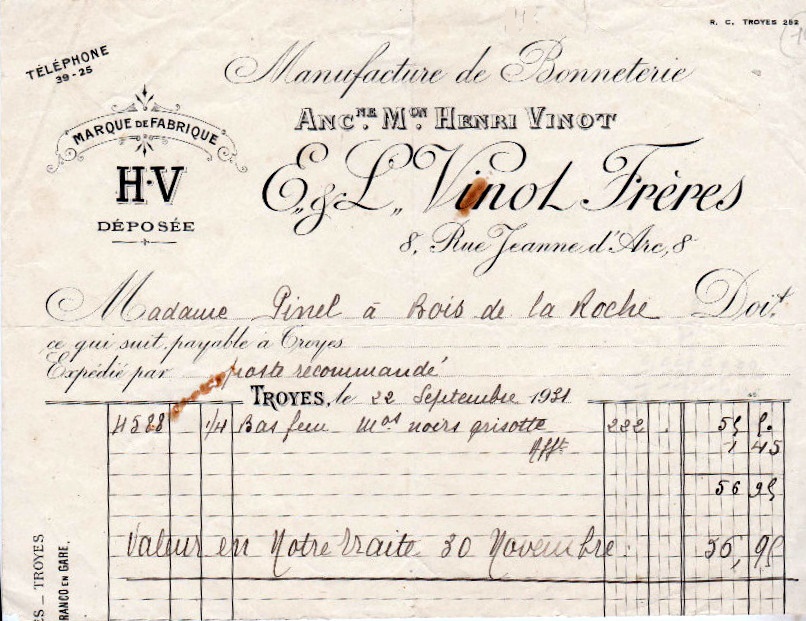 R. C. TROYES 282
TÉLÉPHONE
39-25
Manufacture de Bonneterie
ANC.NE M.ON HENRI VINOT
MARQUE DE FABRIQUE
H·V
DÉPOSÉE
E. & L. Vinot Frères
8, Rue Jeanne d'Arc, 8
Madame Pinel à Bois de la Roche Doit
ce qui suit, payable à Troyes
Expédié par poste recommandé
TROYES, le 22 Septembre 1931
4588 1/4 Bas fem Mos noirs grisotte 222 . 55 5.
Afft 1 45
56 95
Valeur en Notre traite 30 Novembre. 56,95
ES - TROYES
FRANCO EN GARE.